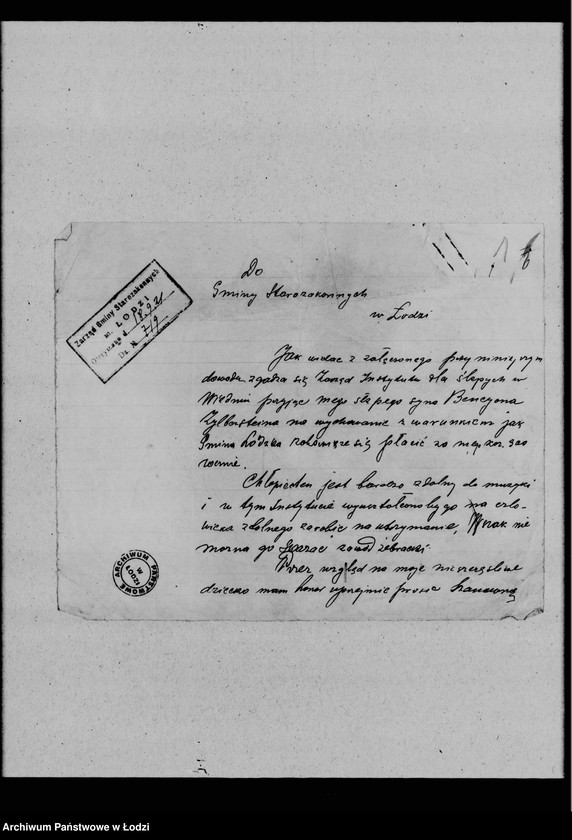 Do
Gminy Starozakonnych
w Łodzi
Zarząd Gminy Starozakonnych
m. ŁODZI
Otrzymano d. 18.9.21
Dz. N 719
Jak widać z załączonego przy niniejszym
dowodu zgadza się Zarząd Instytutu dla ślepych w
Wiedniu przyjąć mego ślepego syna Bencyona
Zylbersteina na wychowanie z warunkiem jak
Gmina Łódzka zobowiąże się płacić za
rocznie.
Chłopiec ten jest bardzo zdolny do muzyki
i w tym Instytucie wykształconoby go na czło-
wieka zdolnego zarobić na utrzymanie, Wszak nie
można go zawód żebraczki
Przez wzgląd na moje nieszczęśliwe
dziecko mam honor uprzejmie prosić Szanowną
ARCHIWUM PAŃSTWOWE
W
ŁODZI
Archiwum Państwowe w Łodzi